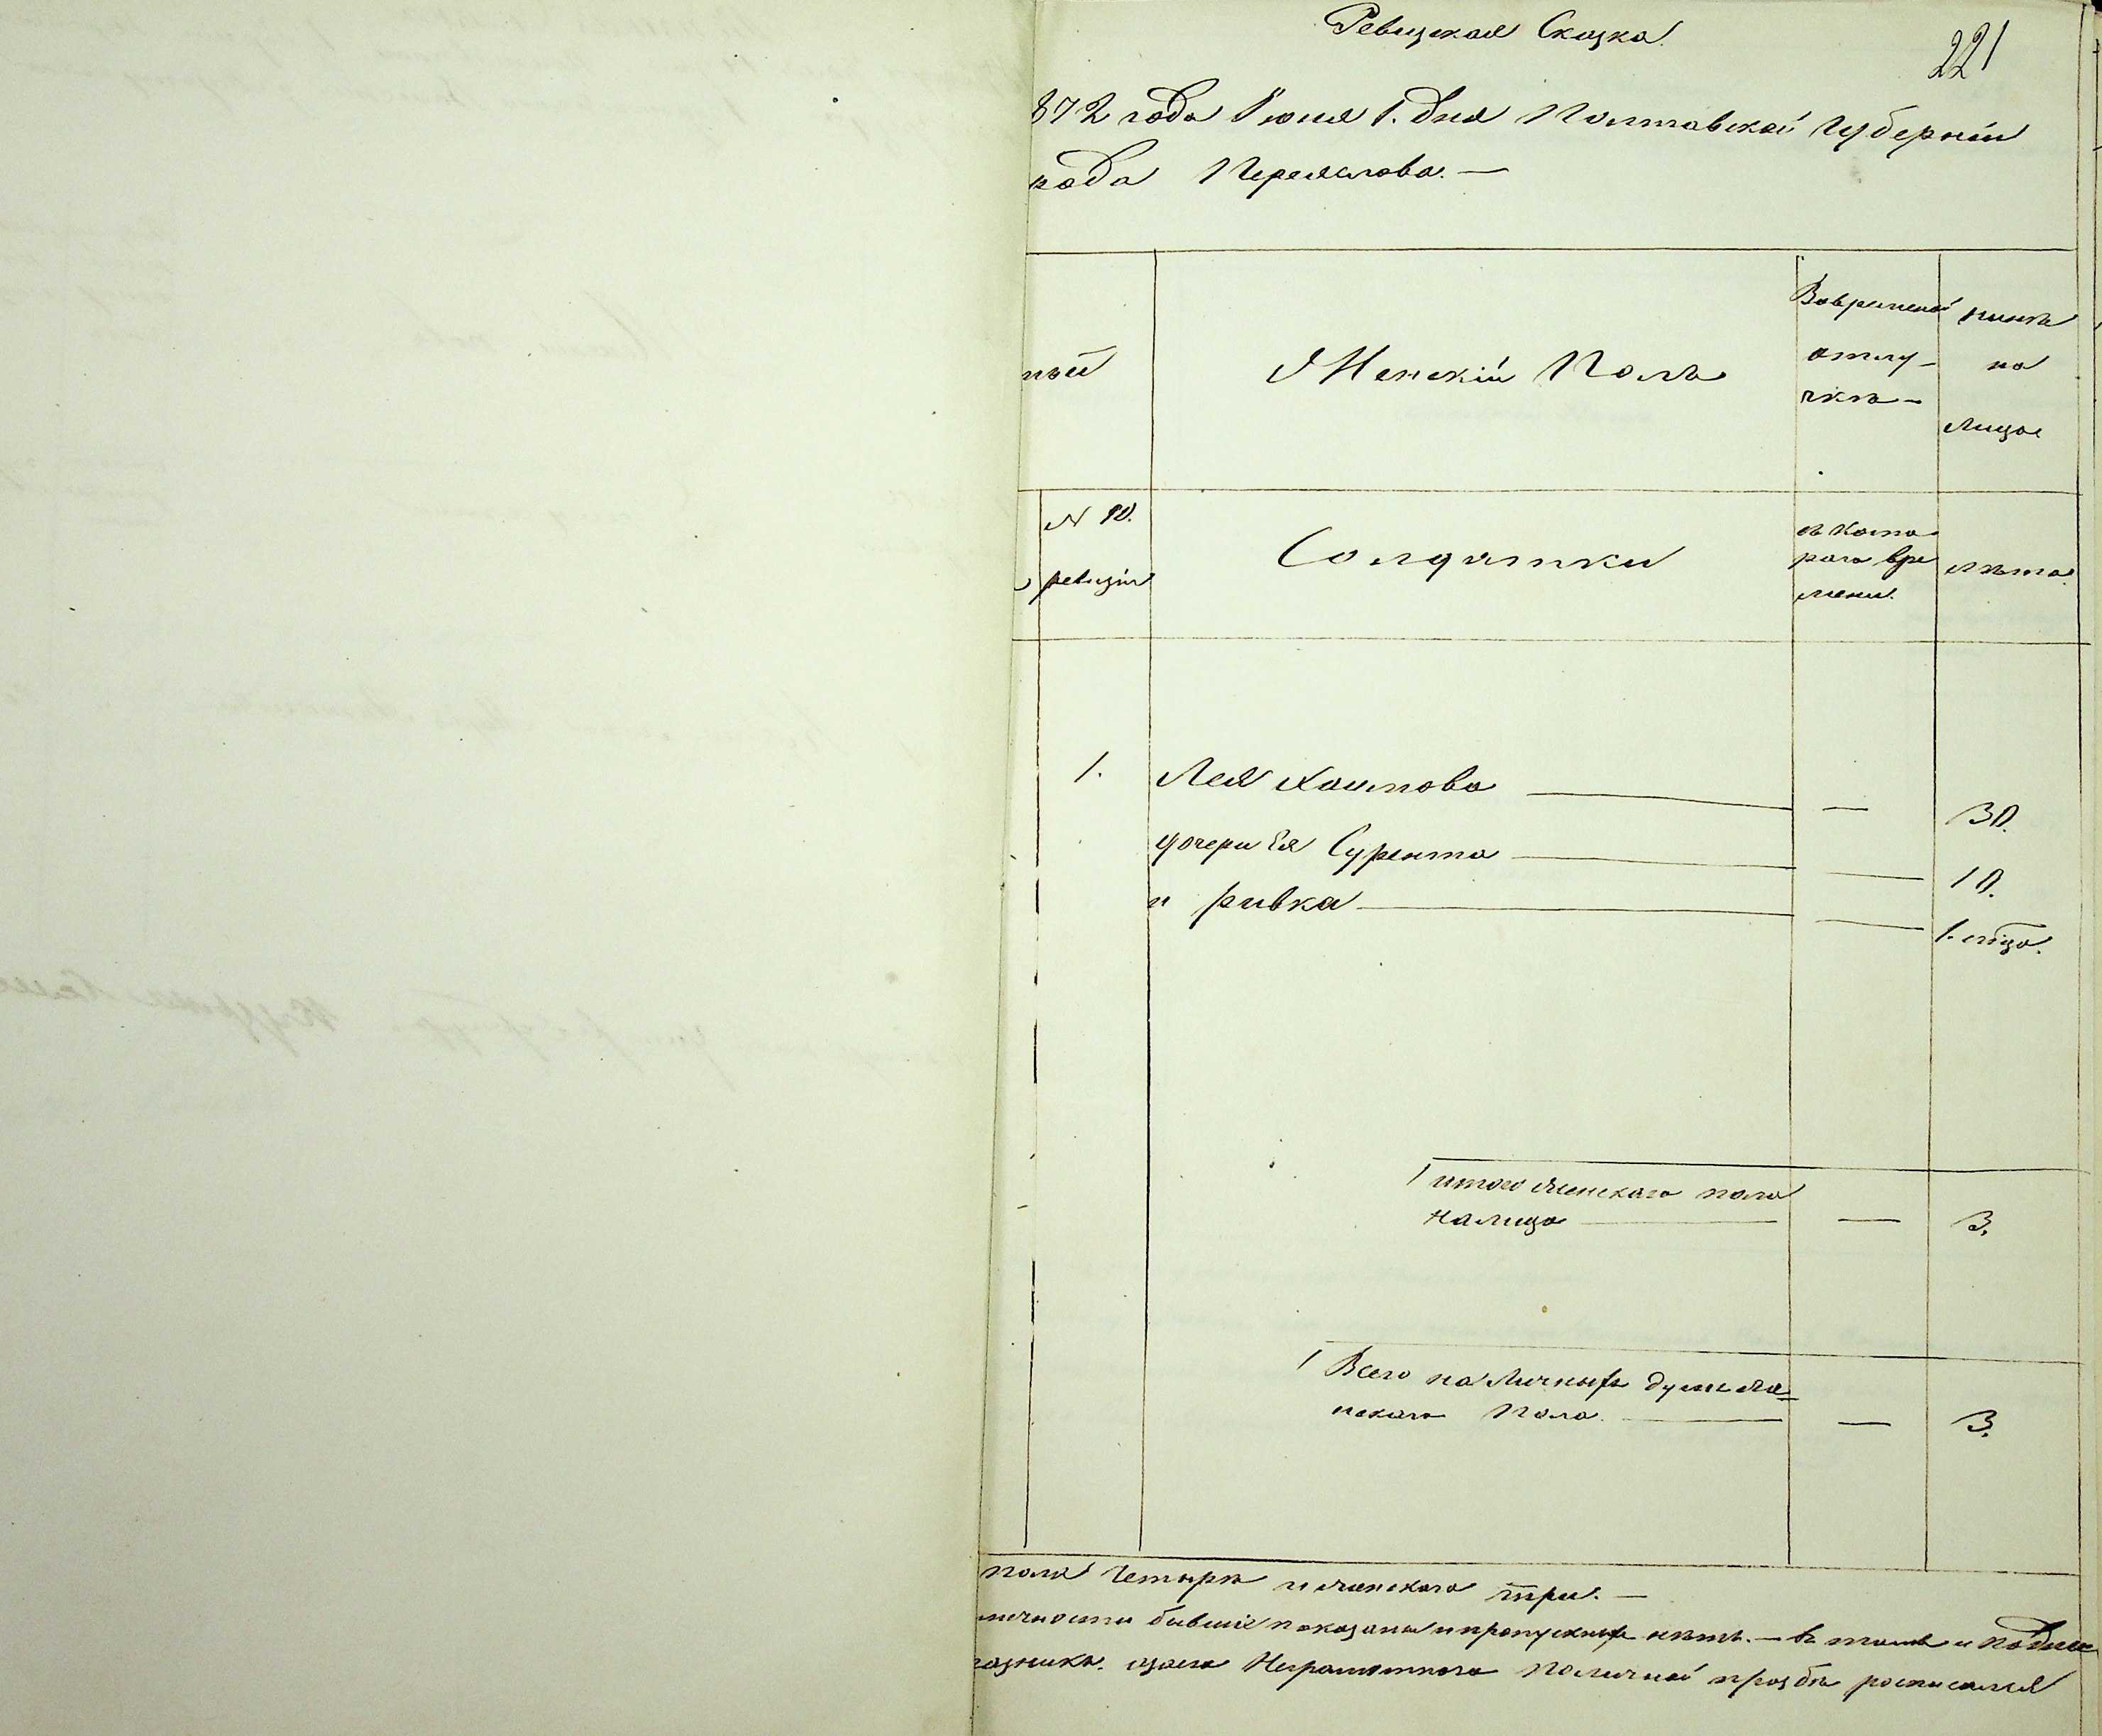 Ревизская Сказка.
221
872 года Іюня 1. дня Полтавской Губерніи
рода Переяслова. —
ный
Женскій Полъ
Вовременой
отлу-
чкѣ -
нынѣ
на
лицо
N 10.
ревизіи
Солдатки
съ кото
раго вре
мени.
лѣта.
1. Лея Хаимова — — 30.
дочери Ея Сурента — — 10.
и Ривка — — 1. года.
Итого женскаго пола
налицо — — 3.
Всего наличныхъ душъ же-
нскаго Пола. — — 3.
пола Четыре и женскаго три. —
личности бывшіе показаны и пропускныхъ нѣтъ. — въ томъ и подпис
казника. за него Неграмотнаго По личной прозбѣ росписался